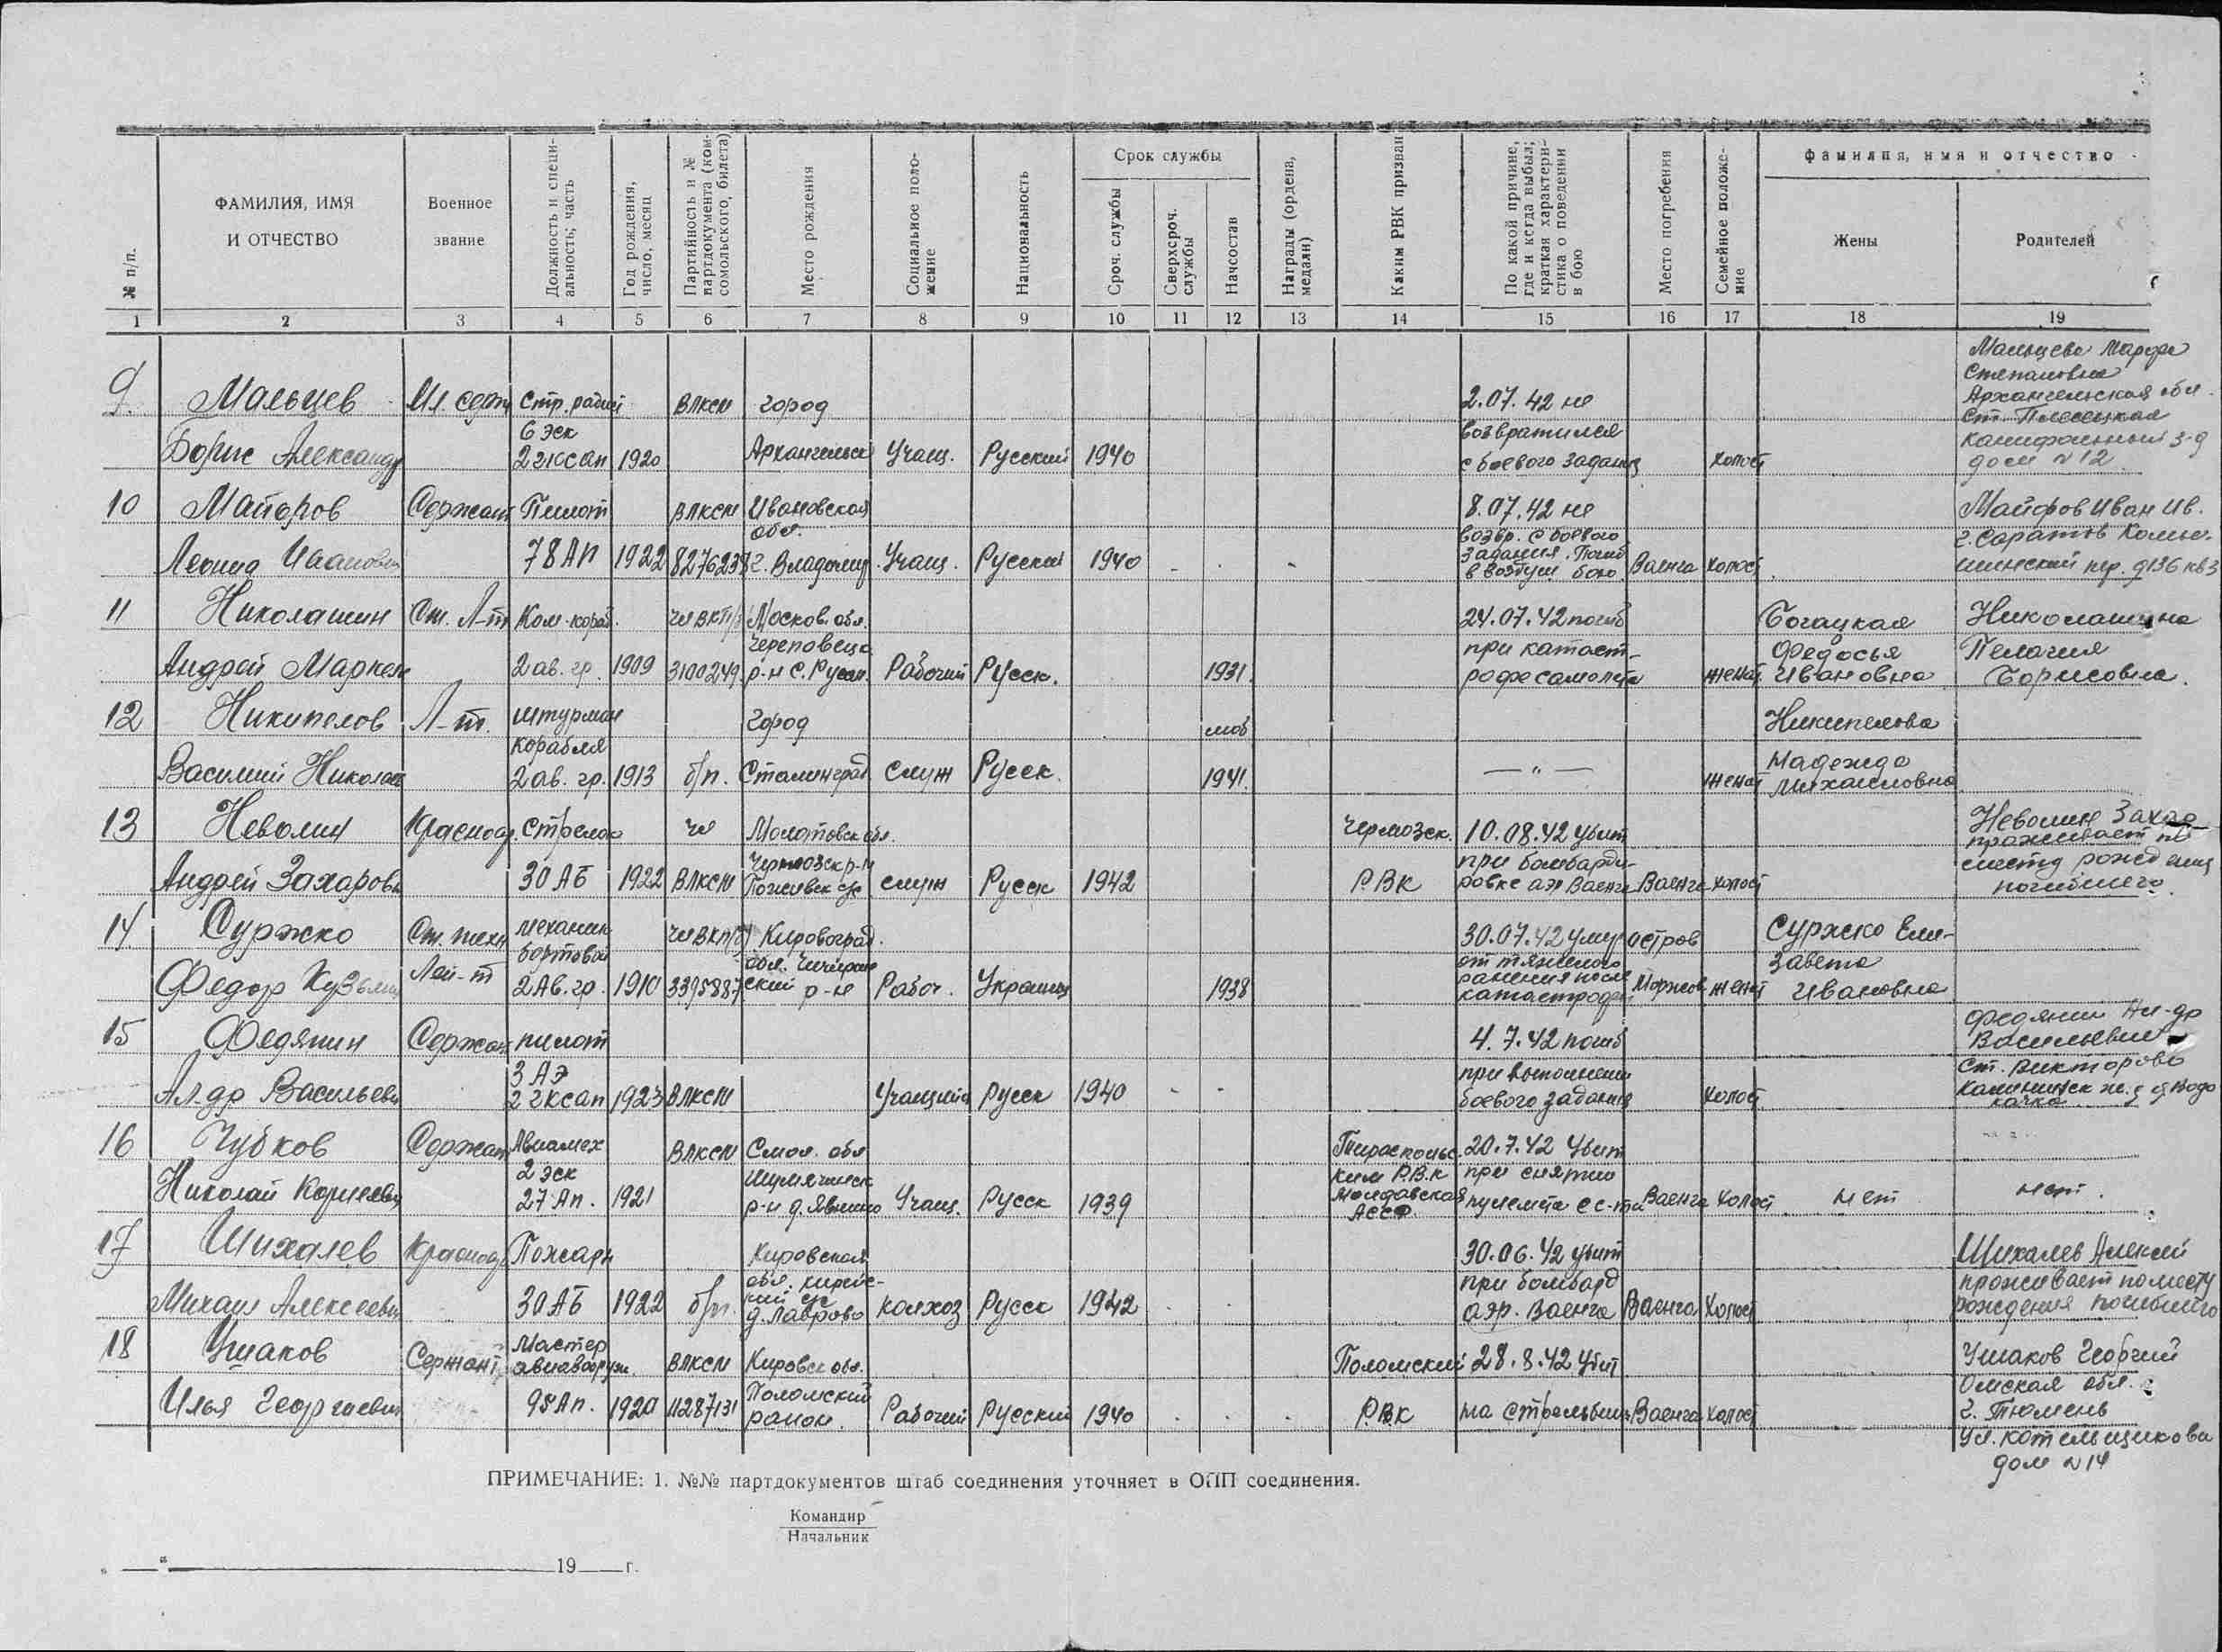 № п/п.
ФАМИЛИЯ, ИМЯ
И ОТЧЕСТВО
Военное
звание
Должность и специ-
альность; часть
Год рождения,
число, месяц
Партийность и №
партдокумента (ком-
сомольского, билета)
Место рождения
Социальное поло-
жение
Национальность
Срок службы
Сроч. службы
Сверхсроч.
службы
Начсостав
Награды (ордена,
медали)
Каким РВК призван
По какой причине,
где и когда выбыл;
краткая характери-
стика о поведении
в бою
Место погребения
Семейное положе-
ние
фамилия, имя и отчество
Жены
Родителей
1 2 3 4 5 6 7 8 9 10 11 12 13 14 15 16 17 18 19
Мальцева
Степановна
Архангельская обл.
9. Мальцев Мл. серж Стр. радист ВЛКСМ город 2.07.42 не
Ст. Плесецкая
6 эск возвратился
Борис Александр 1920 Архангельск Учащ. Русский 1940 с боевого задания холост
дом №12
10 Майоров Сержант Пилот ВЛКСМ Ивановская 8.07.42 не Майоров Иван Ив.
обл. возвр. с боевого г. Саратов
задания. Погиб
Леонид Иванович 78 АП 1922 г. Владимир Учащ. Русский 1940 в воздуш бою Ваенга холост пер. д 136 кв 3
11 Николашин Ст. Л-т Ком. кораб. Москов. обл. 24.07.42 погиб Богацкая Николашина
при катаст- Федосья Пелагия
Андрей 2 ав. гр. 1909 3100249 Рабочий Русск. 1931. рофе самолета женат Ивановна Борисовна.
12 Никипелов Л-т. штурман город моб Никипелова
корабля Надежда
Василий Никола 2 ав. гр. 1913 б/п. Сталинград служ Русск. 1941. — „ — женат Михайловна
13 Неволин Красноар. стрелок чл Молотовск обл. Чермозск. 10.08.42 убит Неволин Захар
при бомбарди- проживает по
Чермозск р-н месту рождения
Андрей Захаров 30 АБ 1922 ВЛКСМ служ Русск 1942 РВК ровке аэ Ваенга Ваенга холост погибшего.
14 Суржко Ст. техн механик чл ВКП(б) Кировоград. 30.07.42 умер остров Суржко Ели-
Лей-т бортовой обл. от тяжелого завета
ранения после
Федор Кузьмич 2 Ав. гр. 1910 3395887 ский р-н Рабоч. Украинец 1938 катастрофы женат Ивановна
15 Федянин Сержант пилот 4.7.42 погиб
Васильевич
3 АЭ при выполнении ст. Викторово
Ал-др Васильев 1923 ВЛКСМ Учащийся Русск 1940 боевого задания холост
качка
16 Чубков Сержант Авиамех ВЛКСМ Смол. обл Тираспольс. 20.7.42 убит
2 эск ким Р.В.К при снятии
Молдавская
Николай Корнеевич 27 Ап. 1921 Учащ. Русск 1939 АССР. пулемета с с-та Ваенга Холост нет нет.
17 Шихалев Красноар Пожарн Кировская 30.06.42 убит Шихалев Алексей
обл. при бомбард проживает по месту
Михаил Алексеевич 30 АБ 1922 б/п. д. Лаврово колхоз Русск 1942 аэр. Ваенга Ваенга Холост рождения погибшего
18 Ушаков Сержант Мастер Ушаков Георгий
авиавооруж. ВЛКСМ Кировск обл. Поломский 28.8.42 убит
Омская обл.
Поломский
Илья Георгиевич 95 Ап. 1920 11287131 район. Рабочий Русский 1940 РВК на стрельбищ Ваенга холост г. Тюмень
ул. Котельщикова
дом №14
ПРИМЕЧАНИЕ: 1. №№ партдокументов штаб соединения уточняет в ОПП соединения.
Командир
Начальник
„ “ 19 г.